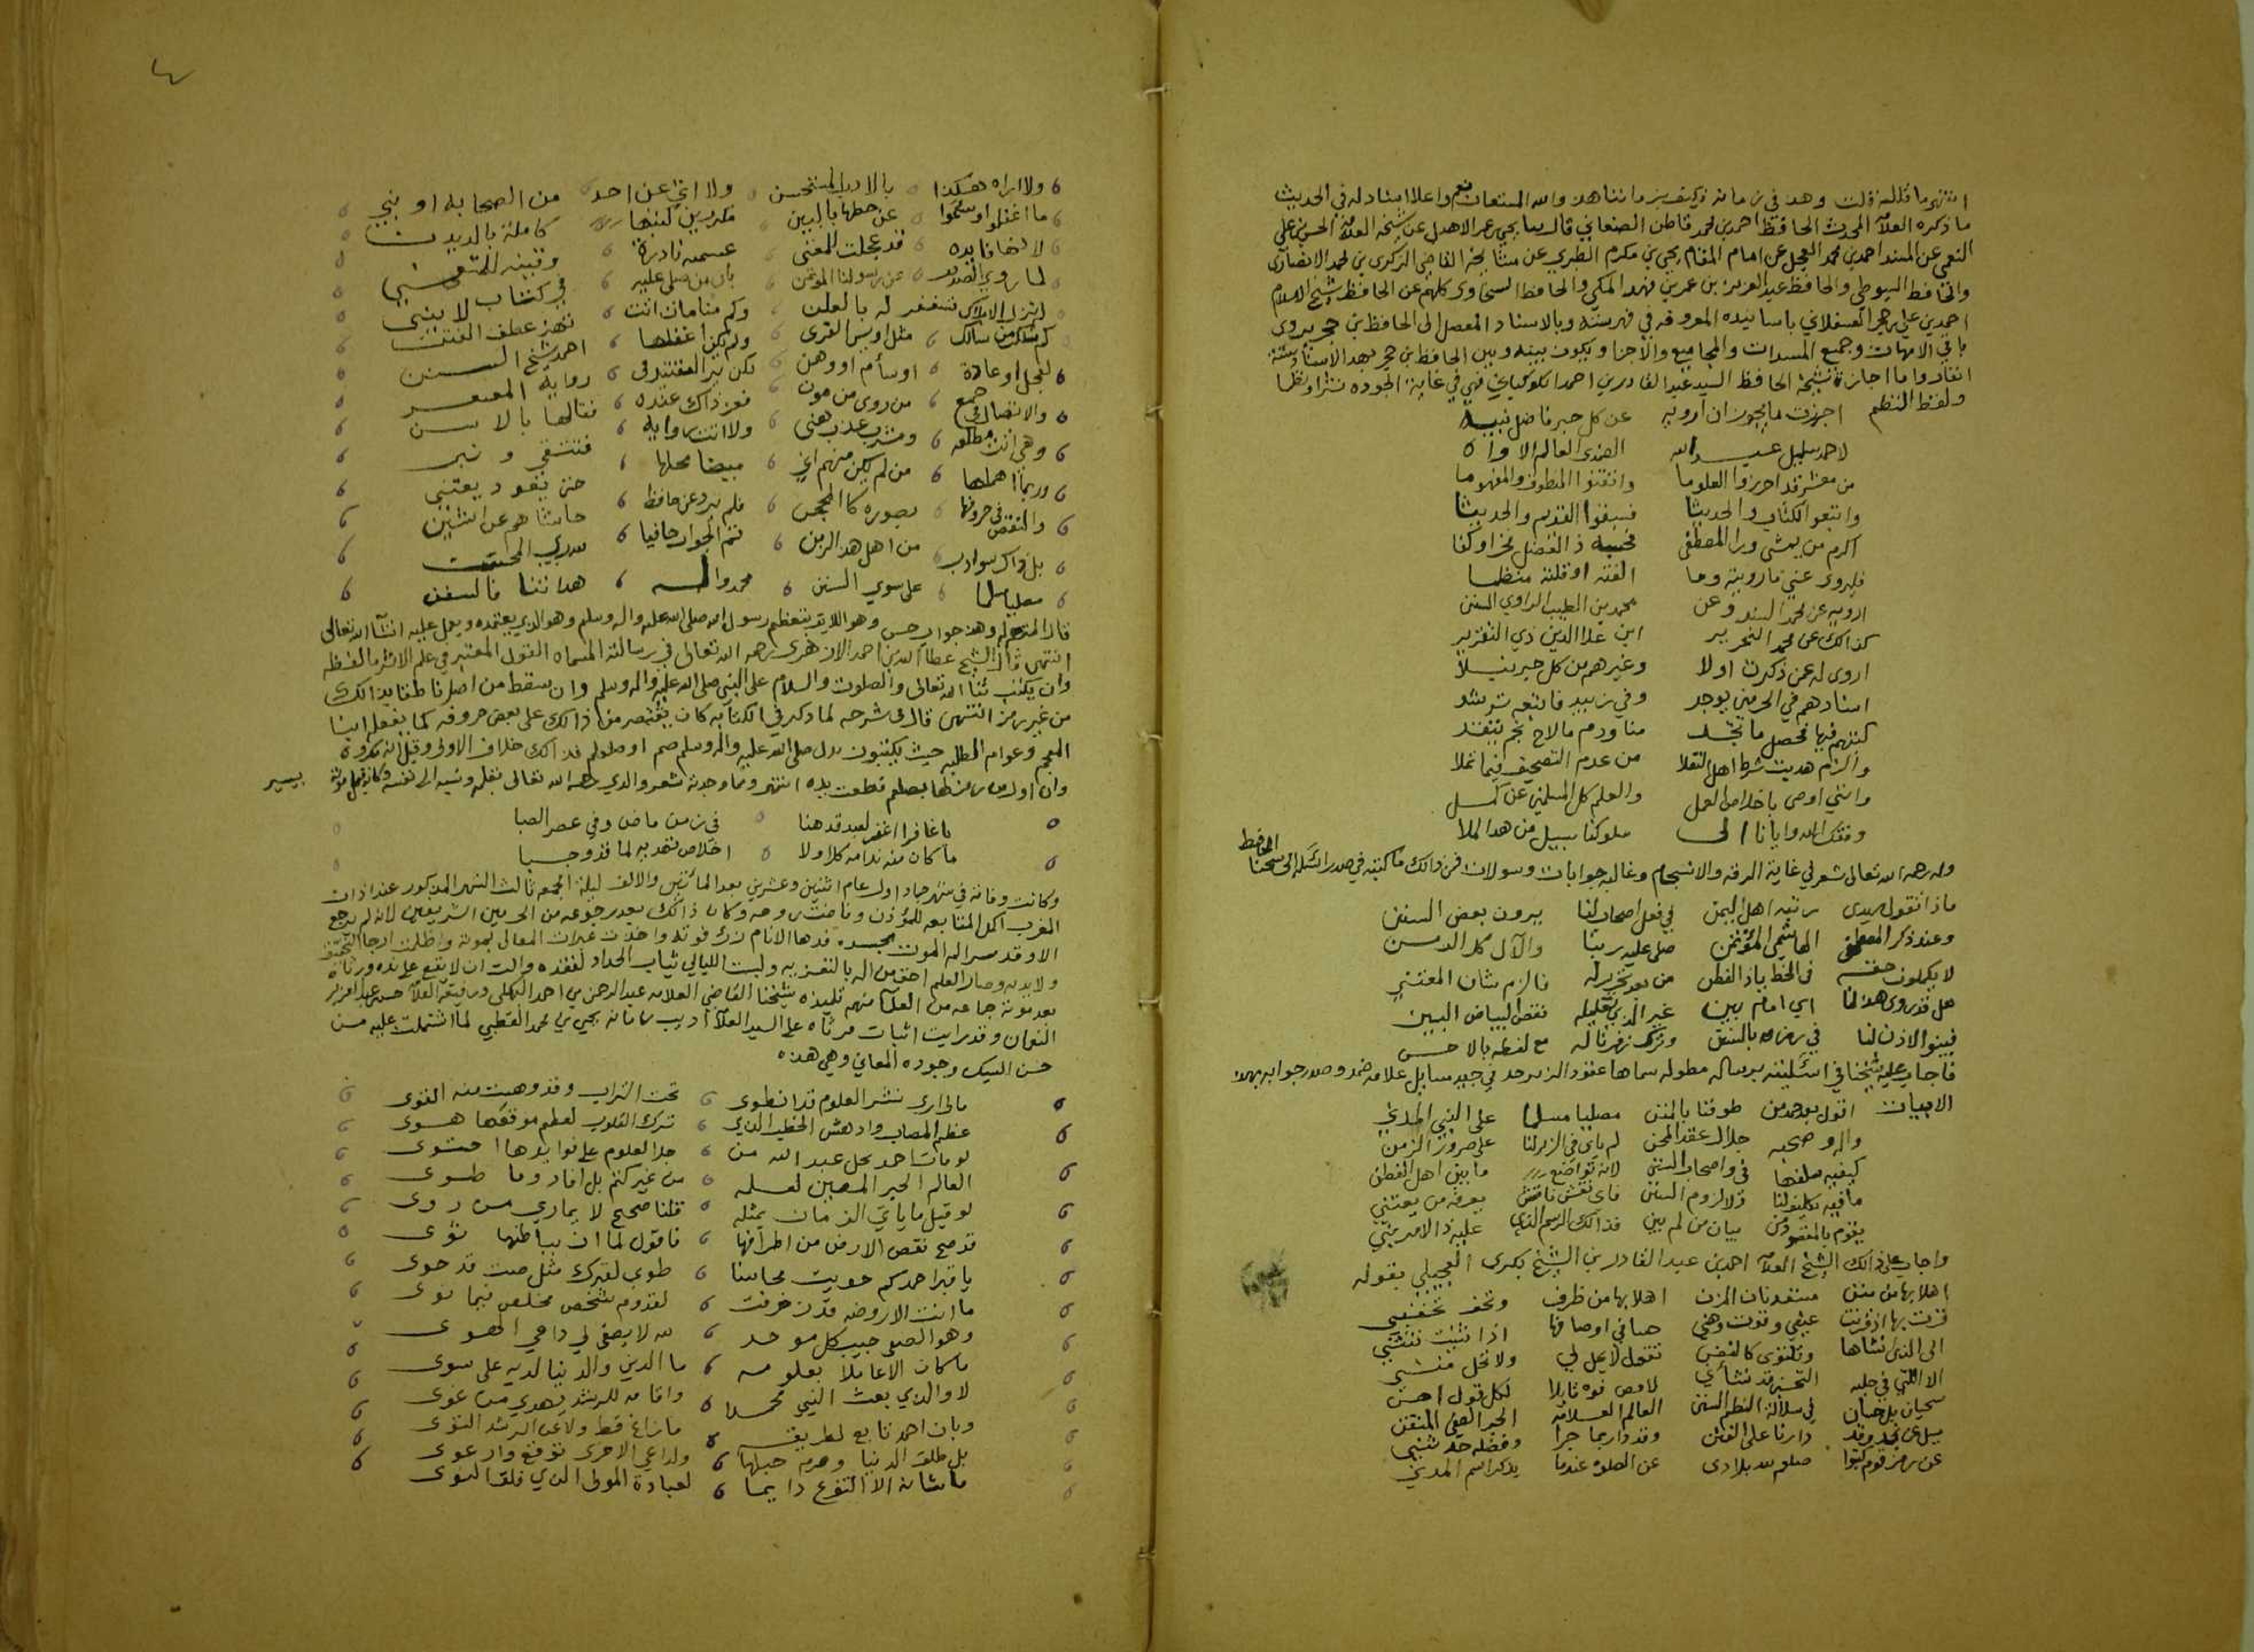 انتهى ما قاله قلت وهذ في زمانه فكيف بزماننا هذ والله المستعان نعم واعلا اسناد له في الحديث
ما ذكره العلامة المحدث الحافظ احمد بن محمد قاطن الصنعاني قال يحيى بن عمر الاهدل عن شيخه العلامة الحسن بن علي
العجمي عن المسند احمد بن محمد العجل عن امام المقام يحيى بن مكرم الطبري عن مشايخه القاضي الزكري بن محمد الانصاري
والحافظ السيوطي والحافظ عبد العزيز بن عمر بن فهد المكي والحافظ السخاوي كلهم عن الحافظ شيخ الاسلام
احمد بن علي بن حجر العسقلاني باسانيده المعروفه في فهرسته وبالاسناد المتصل الى الحافظ بن حجر يروي
باقي الامهات وجميع المسندات والمجاميع والاجزا ويكون بينه وبين الحافظ بن حجر بهذ الاسناد ستة
انفار واما اجازة شيخه الحافظ السيد عبد القادر بن احمد الكوكباني فهي في غاية الجوده نثرا ونظما
ولفظ النظم اجزت ما يجوز ان ارويه عن كل حبر فاضل نبيه
لاحمد سليل عبد الله الصدى العالم الاواه
من معشر قد احرزوا العلوما واتقنوا المنطوق والمفهوما
واتبعوا الكتاب والحديثا فسبقوا القديم والحديثا
اكرم من يمشي ورا المصطفى فحسبه ذ الفضل فخرا وكفا
فليروي عني ما رويته وما الفته او قلته منظما
ارويه عن محمد السند وعن محمد بن الطيب الراوي السنن
كذالك عن محمد النحرير ابن علا الدين ذي التقرير
اروى له عن ذكرت اولا وغيرهم من كل حبر نبلا
اسنادهم في الحرمين يوجد وفي زبيد فاتبعه ترشد
كتبهم فيها فحصل ما تجد منا ودم ما لاح نجم يتقد
والزم هديت شرط اهل النقلا من عدم التصحيف فيما نملا
وانني اوصى باخلاص العمل والعلم كل المسلمين عن كمل
وفقك الله وايانا الى سلوكنا سبيل من هدا الملا
وله رحمه الله تعالى شعر في غاية الرقه والانسجام وغالبه جوابات وسولات فمن ذالك ما كتبه في صدر اسئله الى شيخنا الحافظ
ماذا تقول سيدى رتبه اهل اليمن في فعل اصحاب لنا يبرون بعض السنن
وعند ذكر المصطفى الهاشمي المؤتمن صلى عليه ربنا والآل كل الدمن
لا يكملون حقه في الخط ياذ الفطن من بعد تحرير له فالزم شان المعتني
هل قد روى هذ لنا اي امام بين غير الذي تعليله نقص البياض البين
فبينوا الاذن لنا في رمزه بالسنن وترك زبرنا له مع لفظه بالاحسن
فاجاب عليه شيخنا في اسئلته برساله مطوله سماها عقود الزبرجد في جيد مسايل علامه ضمد وصدر جوابه بهذه
الابيات اقول بعد حمد من طوقنا بالمنن مصليا مسلما على النبي المدني
واله وصحبه جلال عقد المحن لم ياتي في الزبر لنا على صروف الزمن
كيفيه سلفها في واصحاب السنن لانه تواضع ما بين اهل الفطن
ما فيه تكليف لنا ولا لزوم السنن فاى نقش ناقش يعرفه من يعتني
يقوم بالمقصود من بيان من لم يبن فذالك الرسم الذي عليه ذ الامر بني
واجاب على ذالك الشيخ العلامة احمد بن عبد القادر بن الشيخ بكرى العجيلي بقوله
اهلا بها من منن مستقد نان المزن اهلا بها من ظرف وتحف تخفني
قرت بها اذ قرنت عيني وقوت وهني حسا في اوصافها اذا تثنت تنثني
الى الذى نشاها وتلتوى كالغصن تقول لا يحل لي ولا يحل منني
الا اللتي في حلبه التحسن قد نشأتي لا فض فوه قايلا لكل قول احسن
سحبان بل حسان في سلالة النظم السني العالم العلامه الحبر الصفي المتقن
يسل عن نجد وقد دارنا على الفتن وقد دار بما جرا وفضله حد ثنيى
عن رمز قوم كتبوا صلعم لله بلادى عن الصلوه عندما يذكر اسم المدني
٤
ولا اراه هكذا بالادب المستحسن ولا اتى عن احد من الصحابه او بني
ما اغفلوا وسئموا عن خطها بالبين مكررين كتبها كاملة بالديدن
لا تخفا يده قد عجلت للمغني عسمه نادرة وقينه للمتعني
لما روي الصدر عن رسولنا المؤتمن بان من صلى عليه في كتاب لا يني
لم تزل الاملاك تستغفر له بالعلن وكم منامات اتت تهز عطف الفتن
كم شكر من سالك مثل اويس القرى ولم يكن اغفلها احمد شيخ السنن
لعجل او عادة او سأم او وهن لكن ير المقتدى في رواية المعنعن
والاتصال في جميع من روى من مون فعز ذاك عنده فقالها بالالسن
وهي اتت مطلقه ومشرب عذب هني ولا اتت روايه فتنتقي ونبر
وربما اهملها من لم يكن منهم اني مبيضا محلها حتى يعود يعتني
والنقص في حروفها بصوره كالمجحن فلم يرد عن حافظ حاشا هم عن الشين
بل ذاك سو ادب من اهل هذ الزمن فتم الجواب حافيا سدر المحسن
مصليا مسلما على سوي السنن محمد واله هداتنا فالسفن
قال المتوله وهذ جواب حسن وهو اللايق بتعظيم رسول الله صلى الله عليه واله وسلم وهو الذي يعتمده ويعمل عليه انشأ الله تعالى
انتهى قال الشيخ عطا الدين احمد الازهرى رحمه الله تعالى في رسالته المسماه القول المعتبر في علم الاثر ما لفظه
وان يكتب ثنا الله تعالى والصلوت والسلام على النبي صلى الله عليه واله وسلم وان سقط من اصل ناطقا بذالك
من غير رمز انتهى قال في شرحه لما ذكر في الكتابه كان يقتصر من ذالك على بعض حروفه كما يفعل ابنا
العجم وعوام الطلبه حيث يكتبون بدل صلى الله عليه واله وسلم صم او صلعم فذالك خلاف الاولى وقيل انه مكروه
وان اول من رمزها بصلعم قطعت يده انتهى ومما وجدته شعر والدي رحمه الله تعالى بقلمه ونسبه الى نفسه وكانه قبل موته بيسير
يا غافرا اغفر لعبد قد هنا في زمن ماض وفي عصر الصبا
ما كان منه ندامه كلا ولا اخلاص تقد به لما قد وجبا
وكانت وفاته في شهر جماد اول عام اثنين وعشرين بعد المائتين والالف ليلة الجمعه ثالث الشهر المذكور عند اذان
المغرب اكمل المتابعه للمؤذن وفاضت روحه وكان ذالك بعد رجوعه من الحرمين الشريفين لانه لم يرجع
الا وقد سرا له الموت بجسده فدها الانام زرك فوته واخذت غمرات المعالى بموته واظلمت ارجا التحقيق
ولا بد له وصار العلم احق من اله بالتعزيه ولبست الليالي ثياب الحداد لفقده والت ان لا يقع على نده ورثاه
بعد موته جماعه من العلما منهم تلميذه شيخنا القاضي العلامه عبد الرحمن بن احمد البهكلى ورفيقه العلامه حسن بن عبد العزيز
النعمان وقد رايت اثبات مرثاه على السيد العلامة اديب زمانه يحيى بن محمد القطبي لما اشتملت عليه من
حسن السبك وجوده المعاني وهي هذه
مالي اري نشر العلوم قد انطوى تحت التراب وقد وهيت منه القوى
عظم المصاب وادهش الخطب الذي ترك القلوب لعظم موقعها هوى
لو مات احمد نجل عبد الله من جل العلوم على فوايدها احتوى
العالم الحبر المعين لعلمه من غير كتم بل افاد وما طوى
لو قيل ما ياتي الزمان بمثله قلنا صحيح لا يماري من روى
قد صح نقص الارض من اطرافها فاقول لما ان بباطنها ثوى
يا قبر احمد كم حويت محاسنا طوبى لقبرك مثل من قد حوى
ما انت الا روضه قد زخرفت لقدوم شخص مخلص فيما نوى
وهو الصفي حبيب كل موحد لله لا يصغى لي داعي الهوى
ما كان الا عاملا بعلومه ما الدين والدنيا لديه على سوى
لا والذي بعث النبي محمدا واقامه للرشد يهدي من غوى
وبان احمد تابع لطريقه ما زاغ قط ولا عن الرشد التوى
بل طلق الدنيا وصرم حبلها ولداعي الاخرى توقع وارعوى
ما شانه الا التورع دايما لعبادة المولى الذي فلق النوى